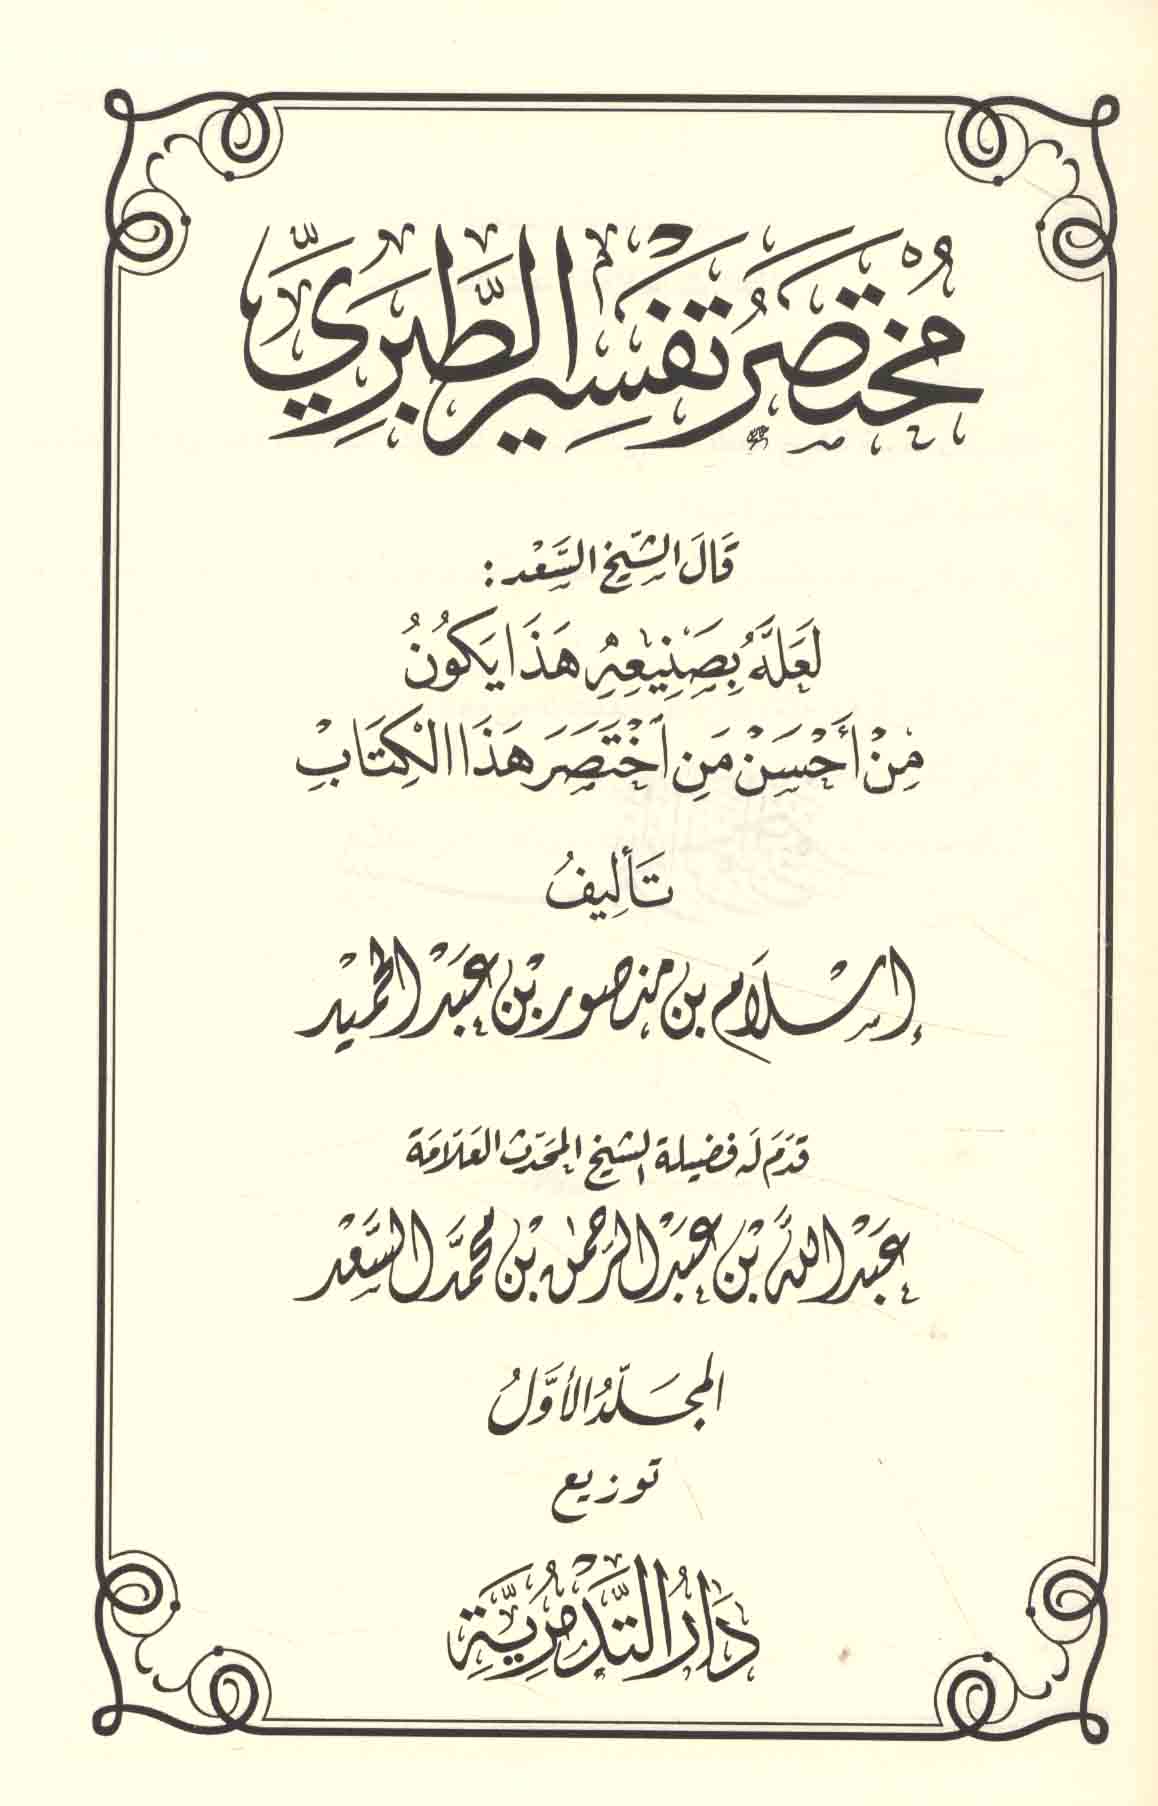 مُخْتَصَرُ تَفْسِيرِ الطَّبَرِيِّ
قَالَ الشَّيْخُ السَّعْد :
لَعَلَّهُ بِصَنِيْعِهِ هَذَا يَكُونُ
مِنْ أَحْسَنِ مَنِ اخْتَصَرَ هَذَا الْكِتَابِ
تَأليفُ
إسْلَام بن منصور بْن عَبْد الحميْد
قدّمَ لَه فضيلة الشيخ المحدّث العَلّامَة
عَبْد اللّه بْن عَبْد الرحمٰن بْن محمَّد السَّعْد
المجَلّدُ الأَوَّلُ
توزيع
دَارُ التَّدْمُرِيَّةِ